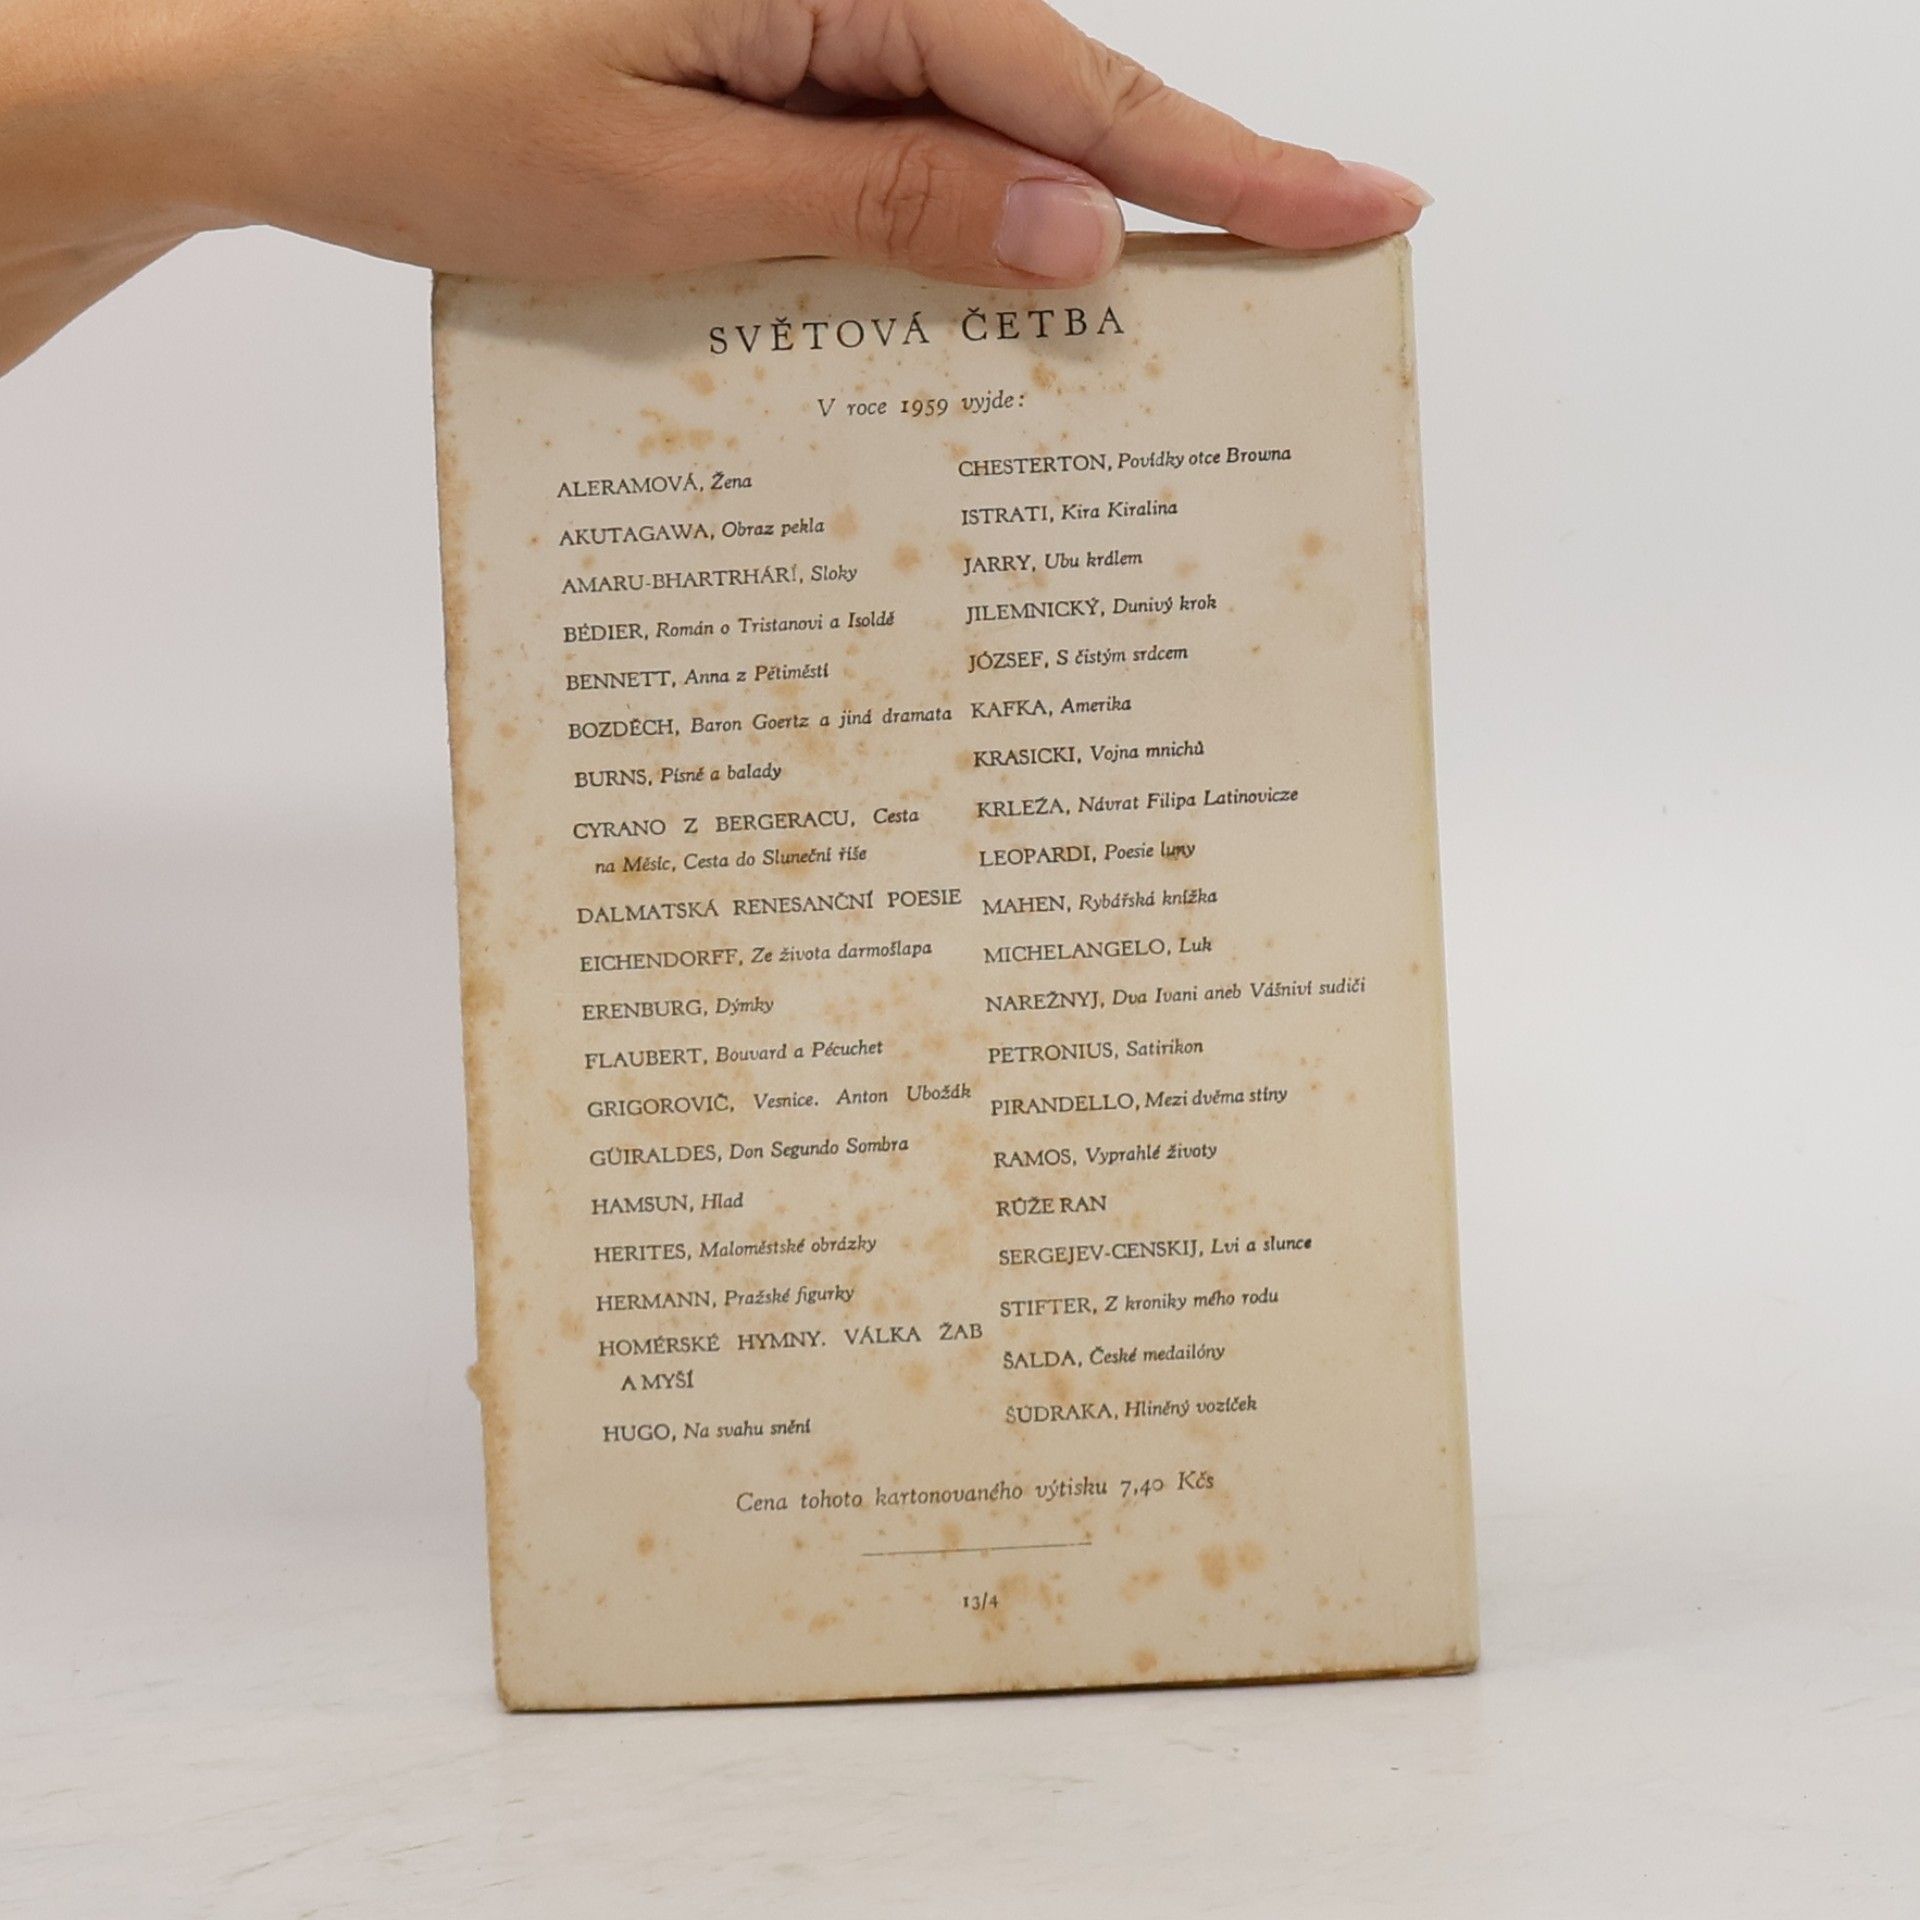 SVĚTOVÁ ČETBA
V roce 1959 vyjde:
ALERAMOVÁ, Žena
AKUTAGAWA, Obraz pekla
AMARU-BHARTRHÁRÍ, Sloky
BÉDIER, Román o Tristanovi a Isoldě
BENNETT, Anna z Pětiměstí
BOZDĚCH, Baron Goertz a jiná dramata
BURNS, Písně a balady
CYRANO Z BERGERACU, Cesta
na Měsíc, Cesta do Sluneční říše
DALMATSKÁ RENESANČNÍ POESIE
EICHENDORFF, Ze života darmošlapa
ERENBURG, Dýmky
FLAUBERT, Bouvard a Pécuchet
GRIGOROVIČ, Vesnice. Anton Ubožák
GÜIRALDES, Don Segundo Sombra
HAMSUN, Hlad
HERITES, Maloměstské obrázky
HERMANN, Pražské figurky
HOMÉRSKÉ HYMNY. VÁLKA ŽAB
A MYŠÍ
HUGO, Na svahu snění
CHESTERTON, Povídky otce Browna
ISTRATI, Kira Kiralina
JARRY, Ubu králem
JILEMNICKÝ, Dunivý krok
JÓZSEF, S čistým srdcem
KAFKA, Amerika
KRASICKI, Vojna mnichů
KRLEŽA, Návrat Filipa Latinovicze
LEOPARDI, Poesie luny
MAHEN, Rybářská knížka
MICHELANGELO, Luk
NAREŽNYJ, Dva Ivani aneb Vášniví sudiči
PETRONIUS, Satirikon
PIRANDELLO, Mezi dvěma stíny
RAMOS, Vyprahlé životy
RŮŽE RAN
SERGEJEV-CENSKIJ, Lvi a slunce
STIFTER, Z kroniky mého rodu
ŠALDA, České medailóny
ŠÚDRAKA, Hliněný vozíček
Cena tohoto kartonovaného výtisku 7,40 Kčs
13/4